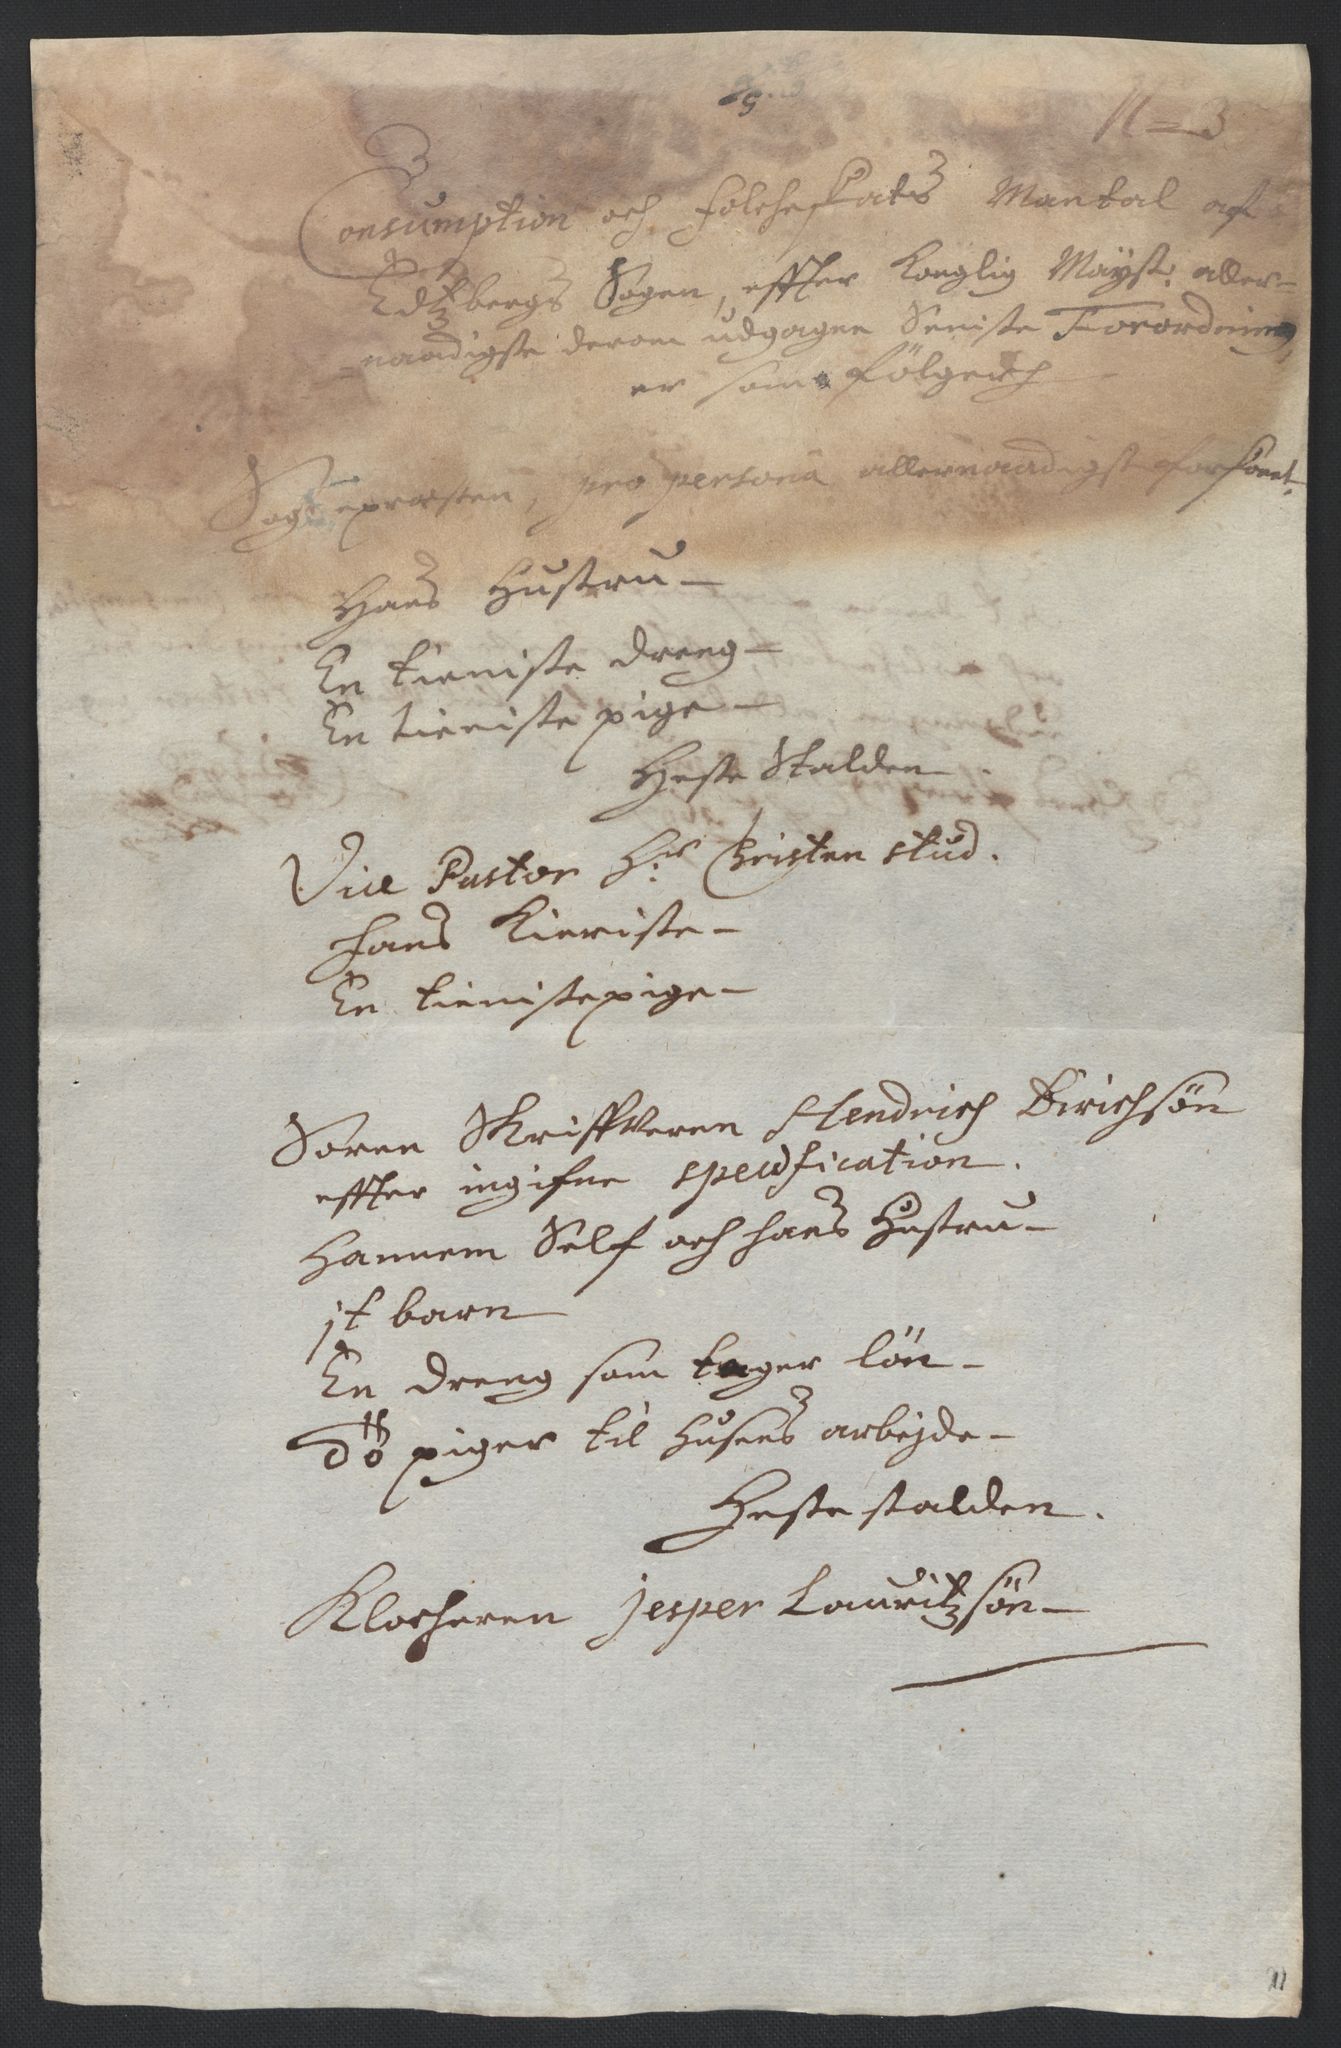 N=3
Consumption och Folcheskats Mantal af
Edtzbergs Sogen, effter Konglig Mayst: aller=
=naadigste derom udgagne Seniste Forordning,
er som følgerch
Sognepræsten, pro persona allernaadigst forskont.
Hans Hustru -
En tieniste dreng -
En tieniste pige -
Heste Stalden.
Vice Pastor Hr. Christen stud.
hans Kieriste -
En tienistepige -
Soren Skriffveren Hendrich Dirichsøn
effter ingifne specification.
Hannem Self och hans Hustru -
jt barn
En dreng som tager løn -
Tho piger til Husens arbejde -
Heste stalden.
Klocheren Jesper Lauritzsøn -